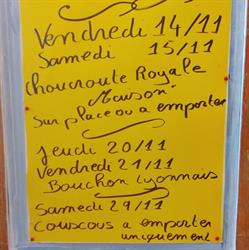 Vendredi 14/11
Samedi 15/11
Choucroute Royale
"Maison"
Sur place ou a emporter
Jeudi 20/11
Vendredi 21/11
Bouchon Lyonnais
Samedi 29/11
Couscous a emporter
uniquement